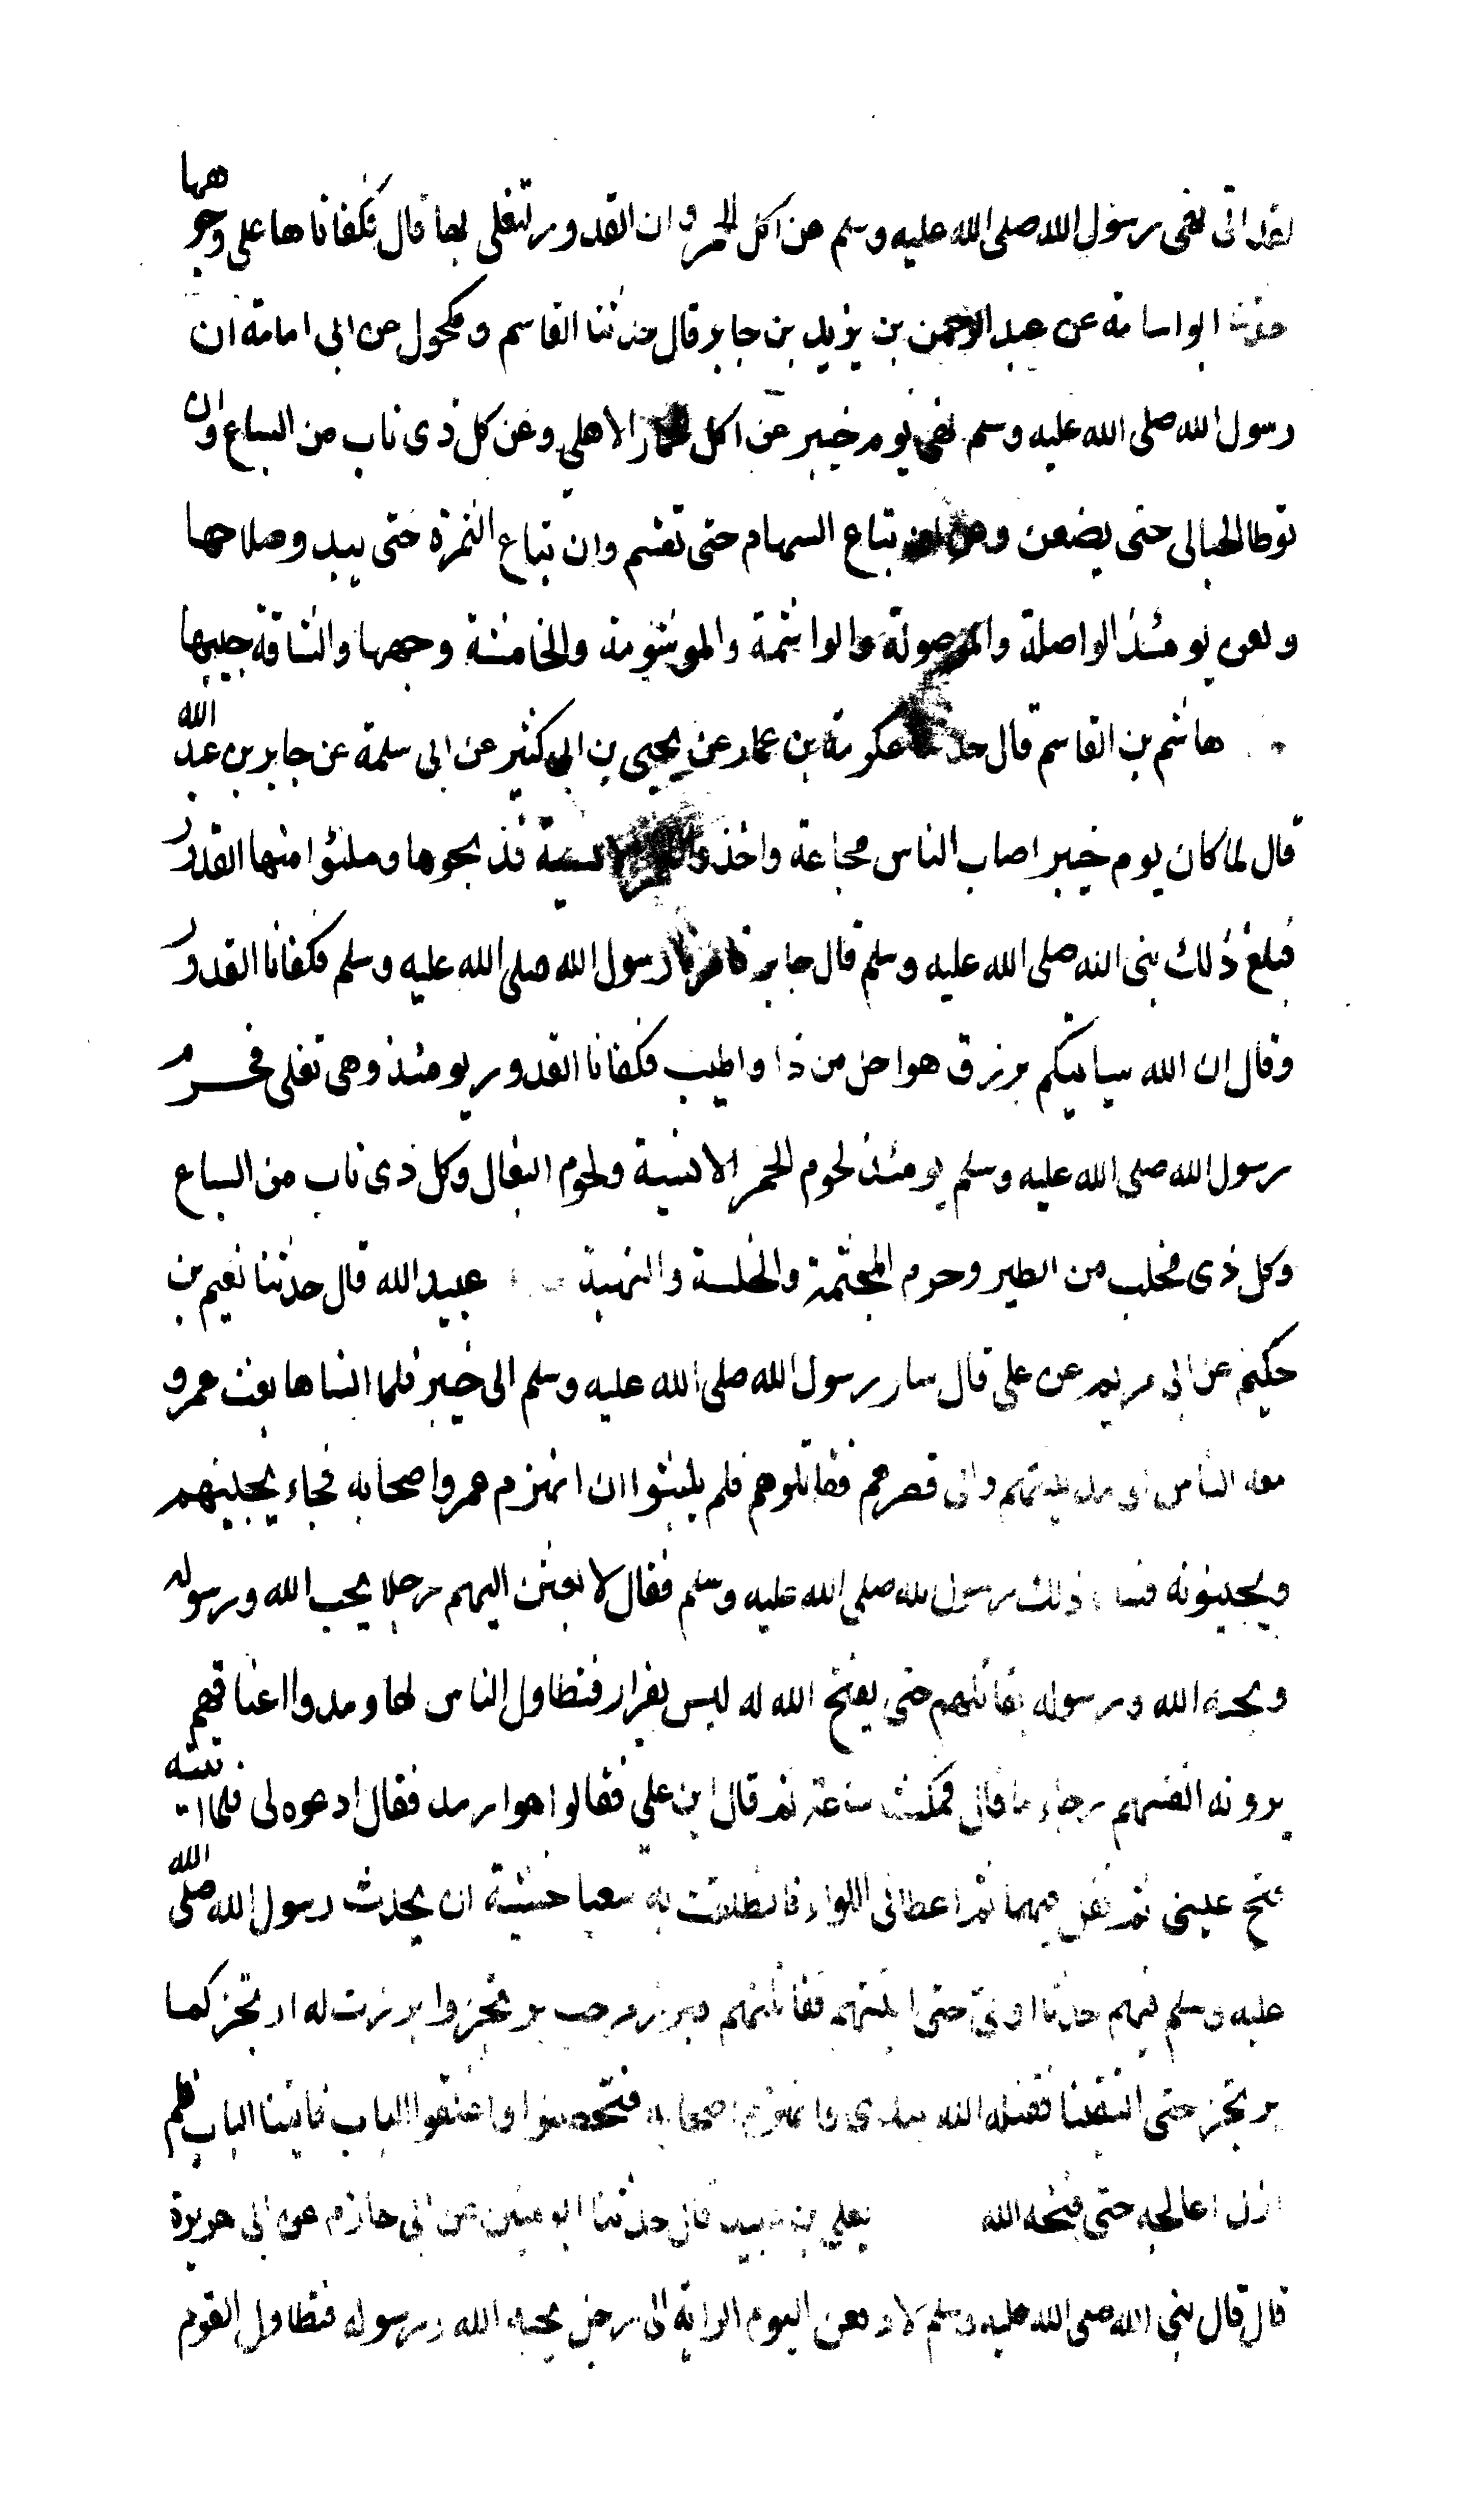 لقد اتى نهى رسول الله صلى الله عليه وسلم عن اكل الحمر وان القدور لتغلى بها قال فكفاناها على وجوهها
حدثنا ابو اسامة عن عبد الرحمن بن يزيد بن جابر قال حدثنا القاسم ومكحول عن ابى امامة ان
رسول الله صلى الله عليه وسلم نهى يوم خيبر عن اكل الحمار الاهلي وعن كل ذى ناب من السباع وان
توطا الحبالى حتى يضعن وعن ان تباع السهام حتى تقسم وان تباع الثمرة حتى يبدو صلاحها
ولعن يومئذ الواصلة والموصولة والواشمة والموشومة والخامشة وجهها والشاقة جيبها
هاشم بن القاسم قال حدثنا عكرمة بن عمار عن يحيى بن ابي كثير عن ابى سلمة عن جابر بن عبد الله
قال لما كان يوم خيبر اصاب الناس مجاعة واخذوا الحمر الانسية فذبحوها وملئوا منها القدور
فبلغ ذلك نبى الله صلى الله عليه وسلم قال جابر فامرنا رسول الله صلى الله عليه وسلم فكفانا القدور
وقال ان الله سياتيكم برزق هو احل من ذا واطيب فكفانا القدور يومئذ وهى تغلى فحرم
رسول الله صلى الله عليه وسلم يومئذ لحوم الحمر الانسية ولحوم البغال وكل ذى ناب من السباع
وكل ذى مخلب من الطير وحرم المجثمة والخلسة والنهبة عبيد الله قال حدثنا نعيم بن
حكيم عن ابى مريم عن على قال سار رسول الله صلى الله عليه وسلم الى خيبر فلما اتاها بعث عمر و
معه الناس الى مدينتهم والى قصرهم فقاتلوهم فلم يلبثوا ان انهزم عمر واصحابه فجاء يجبنهم
ويجبنونه فساء ذلك رسول الله صلى الله عليه وسلم فقال لابعثن اليهم رجلا يحب الله ورسوله
ويحبه الله ورسوله يقاتلهم حتى يفتح الله له ليس بفرار فتطاول الناس لها ومدوا اعناقهم
يرونه انفسهم رجاء ما قال فمكث ساعة ثم قال اين علي فقالوا هو ارمد فقال ادعوه لى فلما اتيته
فتح عينى ثم تفل فيهما ثم اعطانى اللواء فانطلقت به سعيا خشية ان يحدث رسول الله صلى الله
عليه وسلم فيهم حدثا او فى حتى اتيتهم فقاتلتهم فبرز مرحب يرتجز وبرزت له ارتجز كما
يرتجز حتى التقينا فقتله الله بيدى وانهزم اصحابه فتحصنوا واغلقوا الباب فاتينا الباب فلم
ازل اعالجه حتى فتحه الله يعلى بن عبيد قال حدثنا ابو منين عن ابى حازم عن ابى هريرة
قال قال نبى الله صلى الله عليه وسلم لادفعن اليوم الراية الى رجل يحبه الله ورسوله فتطاول القوم